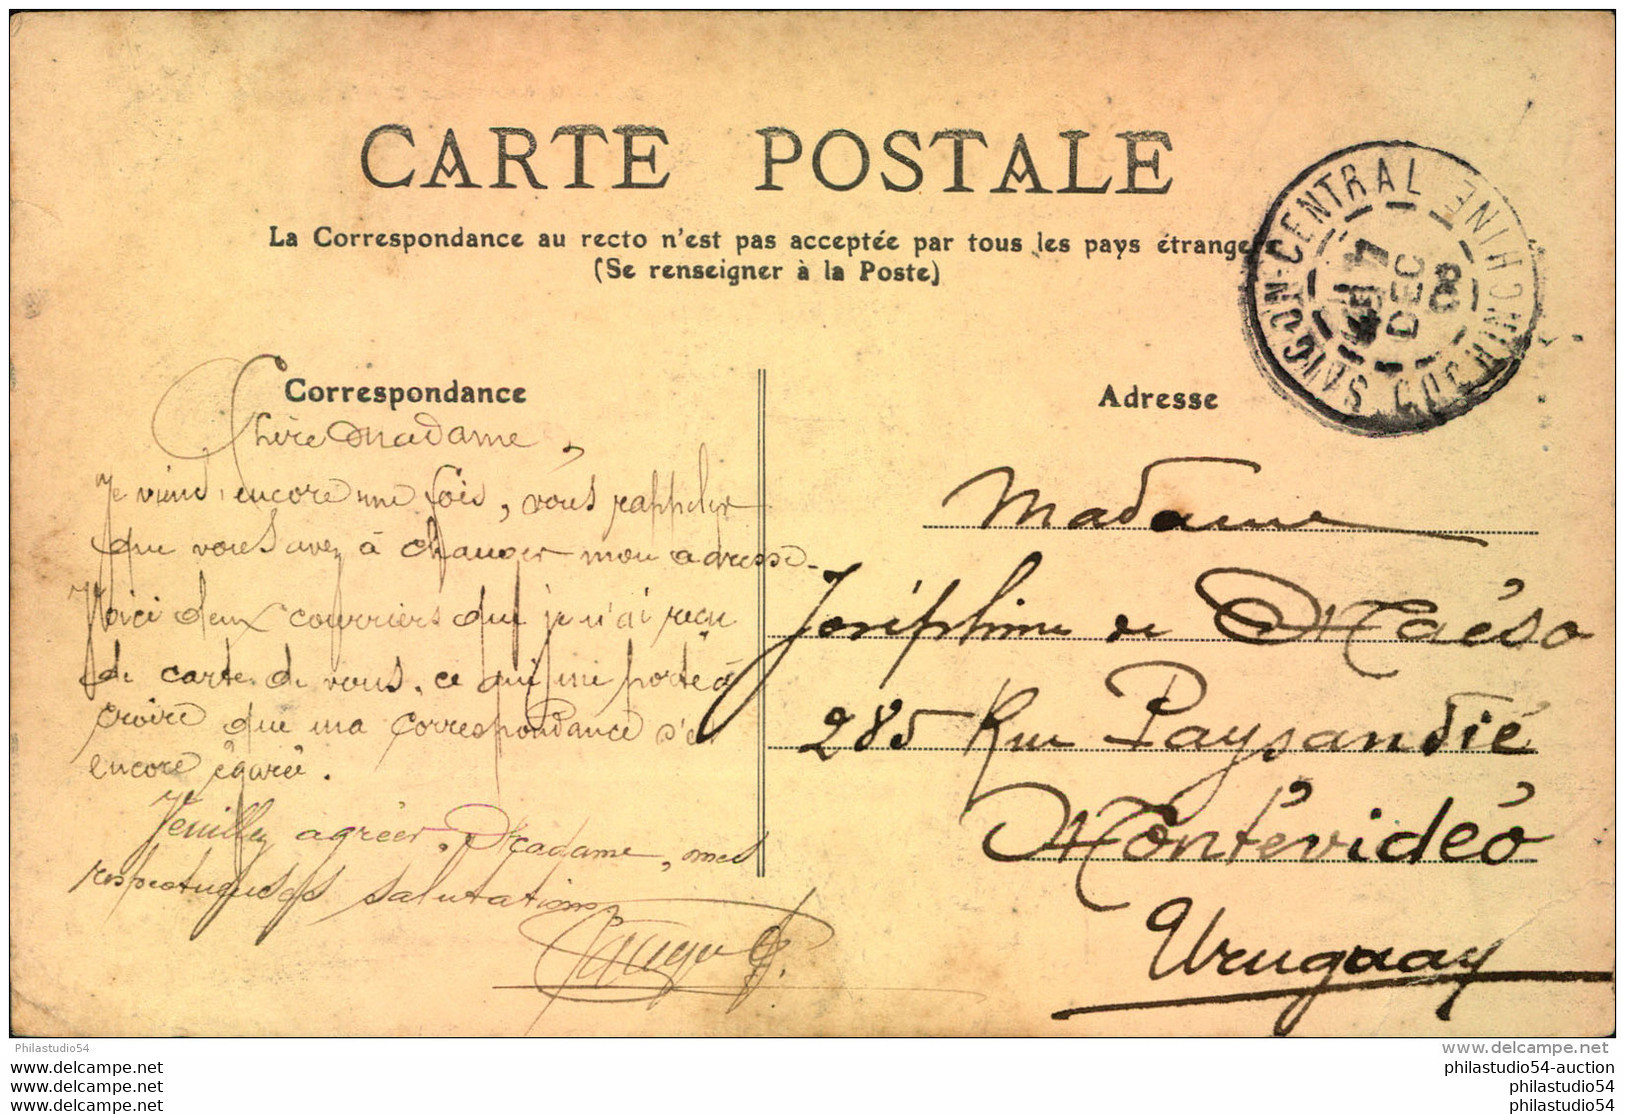 CARTE POSTALE
La Correspondance au recto n'est pas acceptée par tous les pays étrangers
(Se renseigner à la Poste)
SAIGON-CENTRAL COCHINCHINE
DEC
08
Correspondance
Chère Madame,
Je viens encore une fois, vous rappeler
que vous avez à changer mon adresse.
Voici deux courriers que je n'ai reçu
de carte de vous, ce qui me porte à
croire que ma correspondance s'est
encore égaré.
Veuillez agréer, Madame, mes
respectueuses salutations
Adresse
Madame
Joséphine de Maéso
285 Rue Paysandié
Montévidéo
Uruguay
Philastudio54
www.delcampe.net
www.delcampe.net
philastudio54-auction
www.delcampe.net
philastudio54
www.delcampe.net
philastudio54